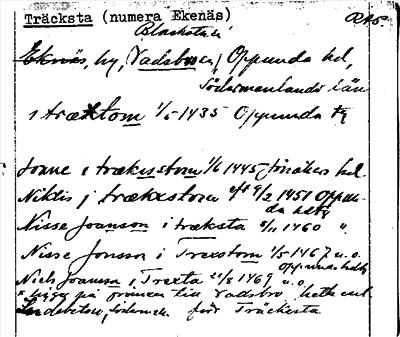 Träcksta (numera Ekenäs)
Blacksta i
Ekenäs, by, Vadsbro, Oppunda hd,
Södermanlands län
i trækstom 1/5 1435 Oppunda
Jonne i trækisstom 1/6 1445 Jönåkers hd
Niklis j trækestom 9/2 1451 Oppun-
da hdtg
Nisse Joanson i træksta 8/11 1460 "
Nisse Jonsson i Traxstom 1/5 1467 u.o.
Oppunda hdtg
Niels Joansson i Traxta 21/8 1469 u.o.
* ligger på gränsen till Vadsbro, hette enl.
Lindebetsu, förr Träckesta